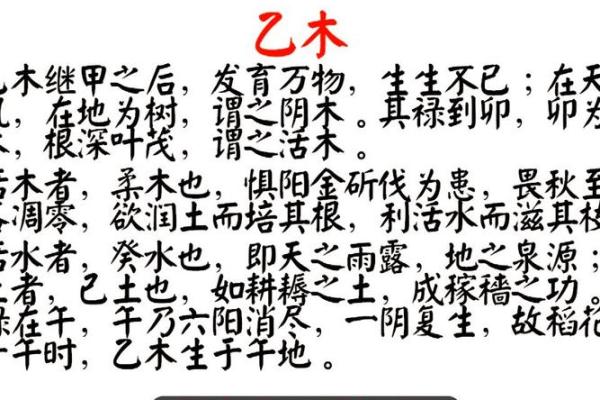 乙木
木继甲之后，发育万物，生生不已；在天
，在地为树，谓之阴木。其禄到卯，卯为
，根深叶茂，谓之活木。
木者，柔木也，惧阳金斫伐为患，畏秋至
凋零，欲润土而培其根，利活水而滋其枝
水者，癸水也，即天之雨露，地之泉源；
者，己土也，如耕耨之土，成稼穑之功。
在午，午乃六阳消尽，一阴复生，故稻花
午时，乙木生于午地。